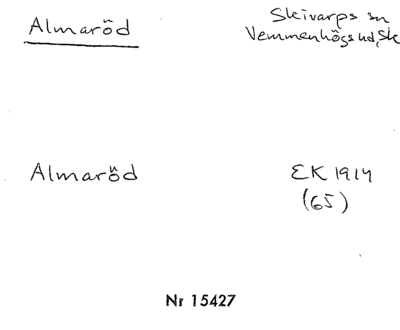 Almaröd
Skivarps sn
Vemmenhögs hd, Sk
Almaröd
EK 1914
(65)
Nr 15427